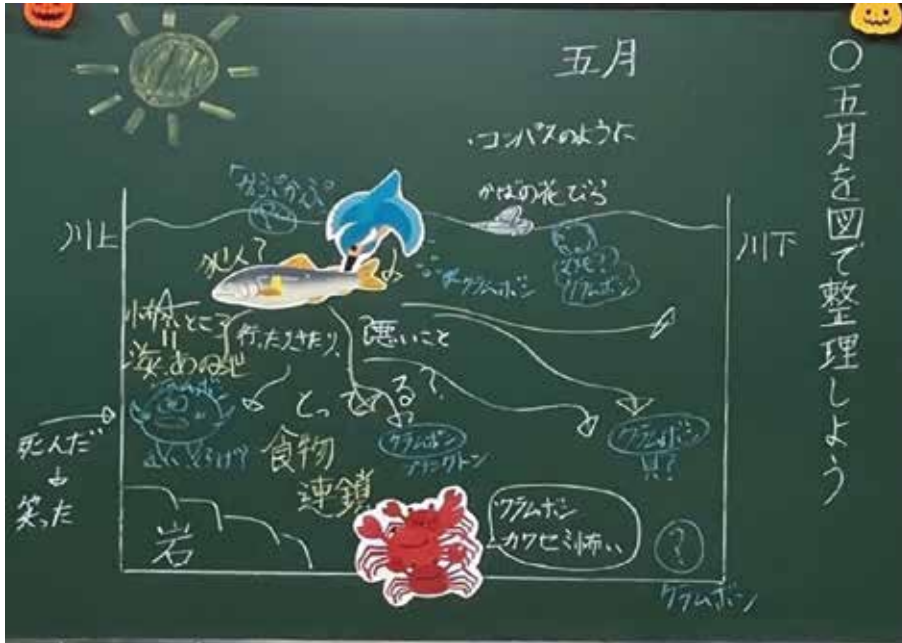 ○五月を図で整理しよう
五月
・コンパスのように
かばの花びら
川上
川下
犯人?
クラムボン
クラムボン
怖いところ
行ったりきたり、
悪いこと
とってる?
クラムボン
プランクトン
クラムボン
貝?
死んだ
笑った
食物
連鎖
岩
・クラムボン
・カワセミ怖い
?
クラムボン